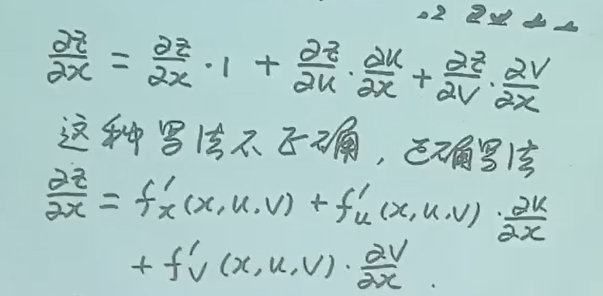 ∂z/∂x = ∂z/∂x · 1 + ∂z/∂u · ∂u/∂x + ∂z/∂v · ∂v/∂x
这种写法不正确，正确写法
∂z/∂x = f'ₓ(x,u,v) + f'ᵤ(x,u,v) · ∂u/∂x
+ f'ᵥ(x,u,v) · ∂v/∂x .